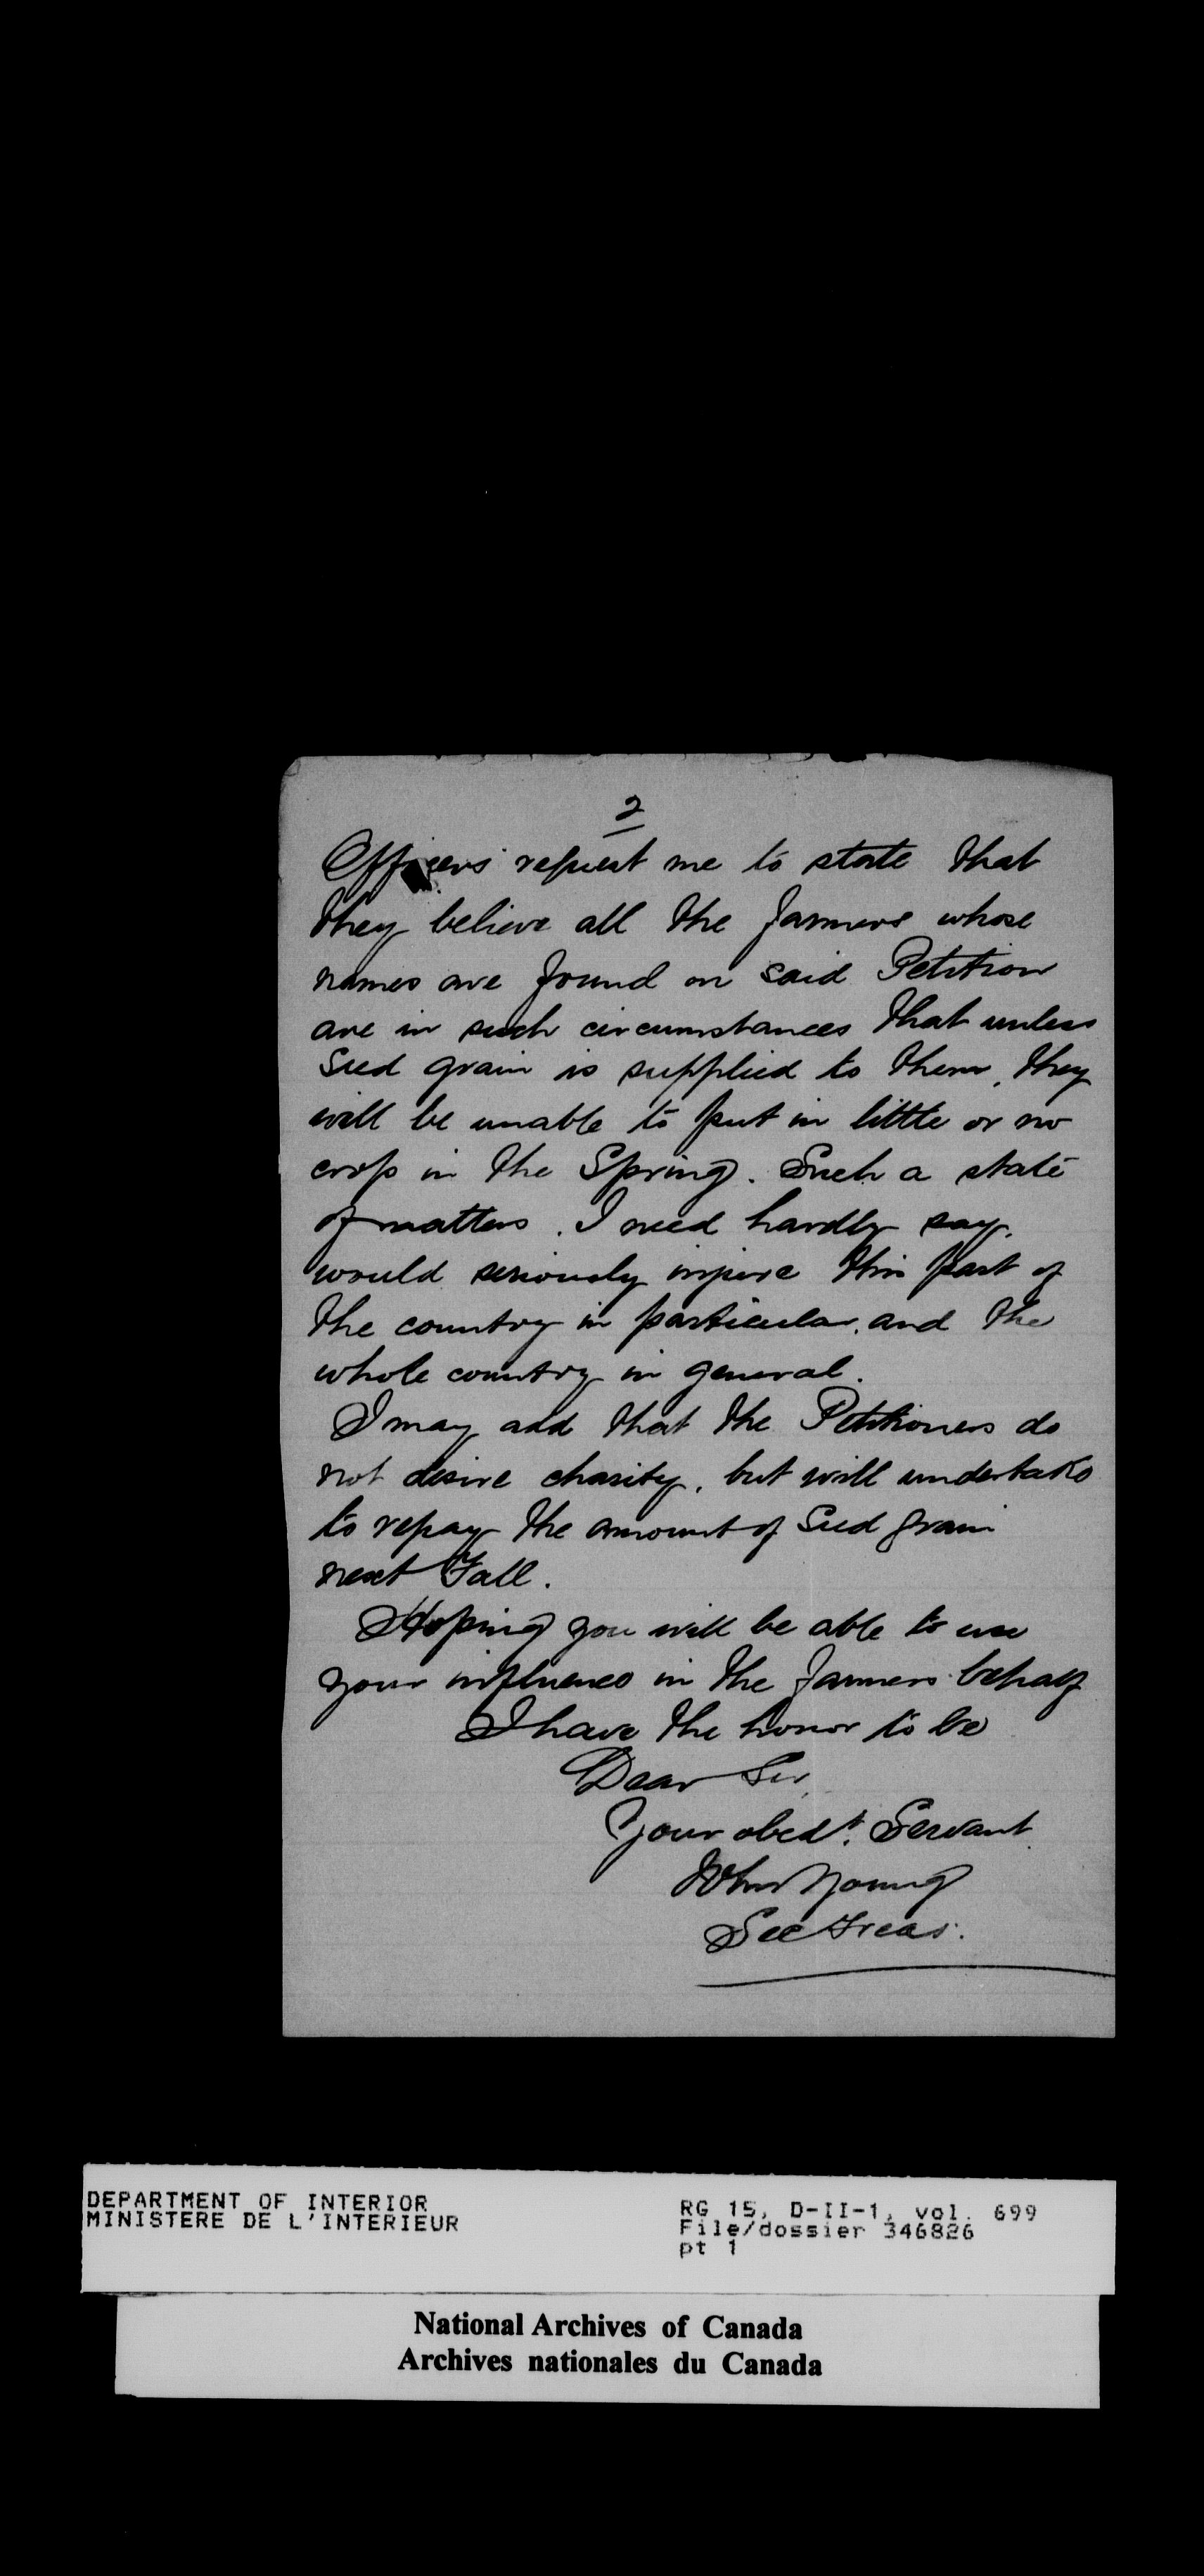 2
Officers request me to state that
they believe all the farmers whose
names are found on said Petition
are in such circumstances that unless
Seed grain is supplied to them, they
will be unable to put in little or no
crop in the Spring. Such a state
of matters, I need hardly say,
would seriously injure this part of
the country in particular, and the
whole country in general.
I may add that the Petitioners do
not desire charity, but will undertake
to repay the amount of Seed grain
next Fall.
Hoping you will be able to use
your influence in the farmers behalf
I have the honor to be
Dear Sir,
Your obedt. Servant
John Young
Sec Treas.
DEPARTMENT OF INTERIOR
MINISTERE DE L'INTERIEUR
RG 15, D-II-1, vol. 699
File/dossier 346826
pt 1
National Archives of Canada
Archives nationales du Canada